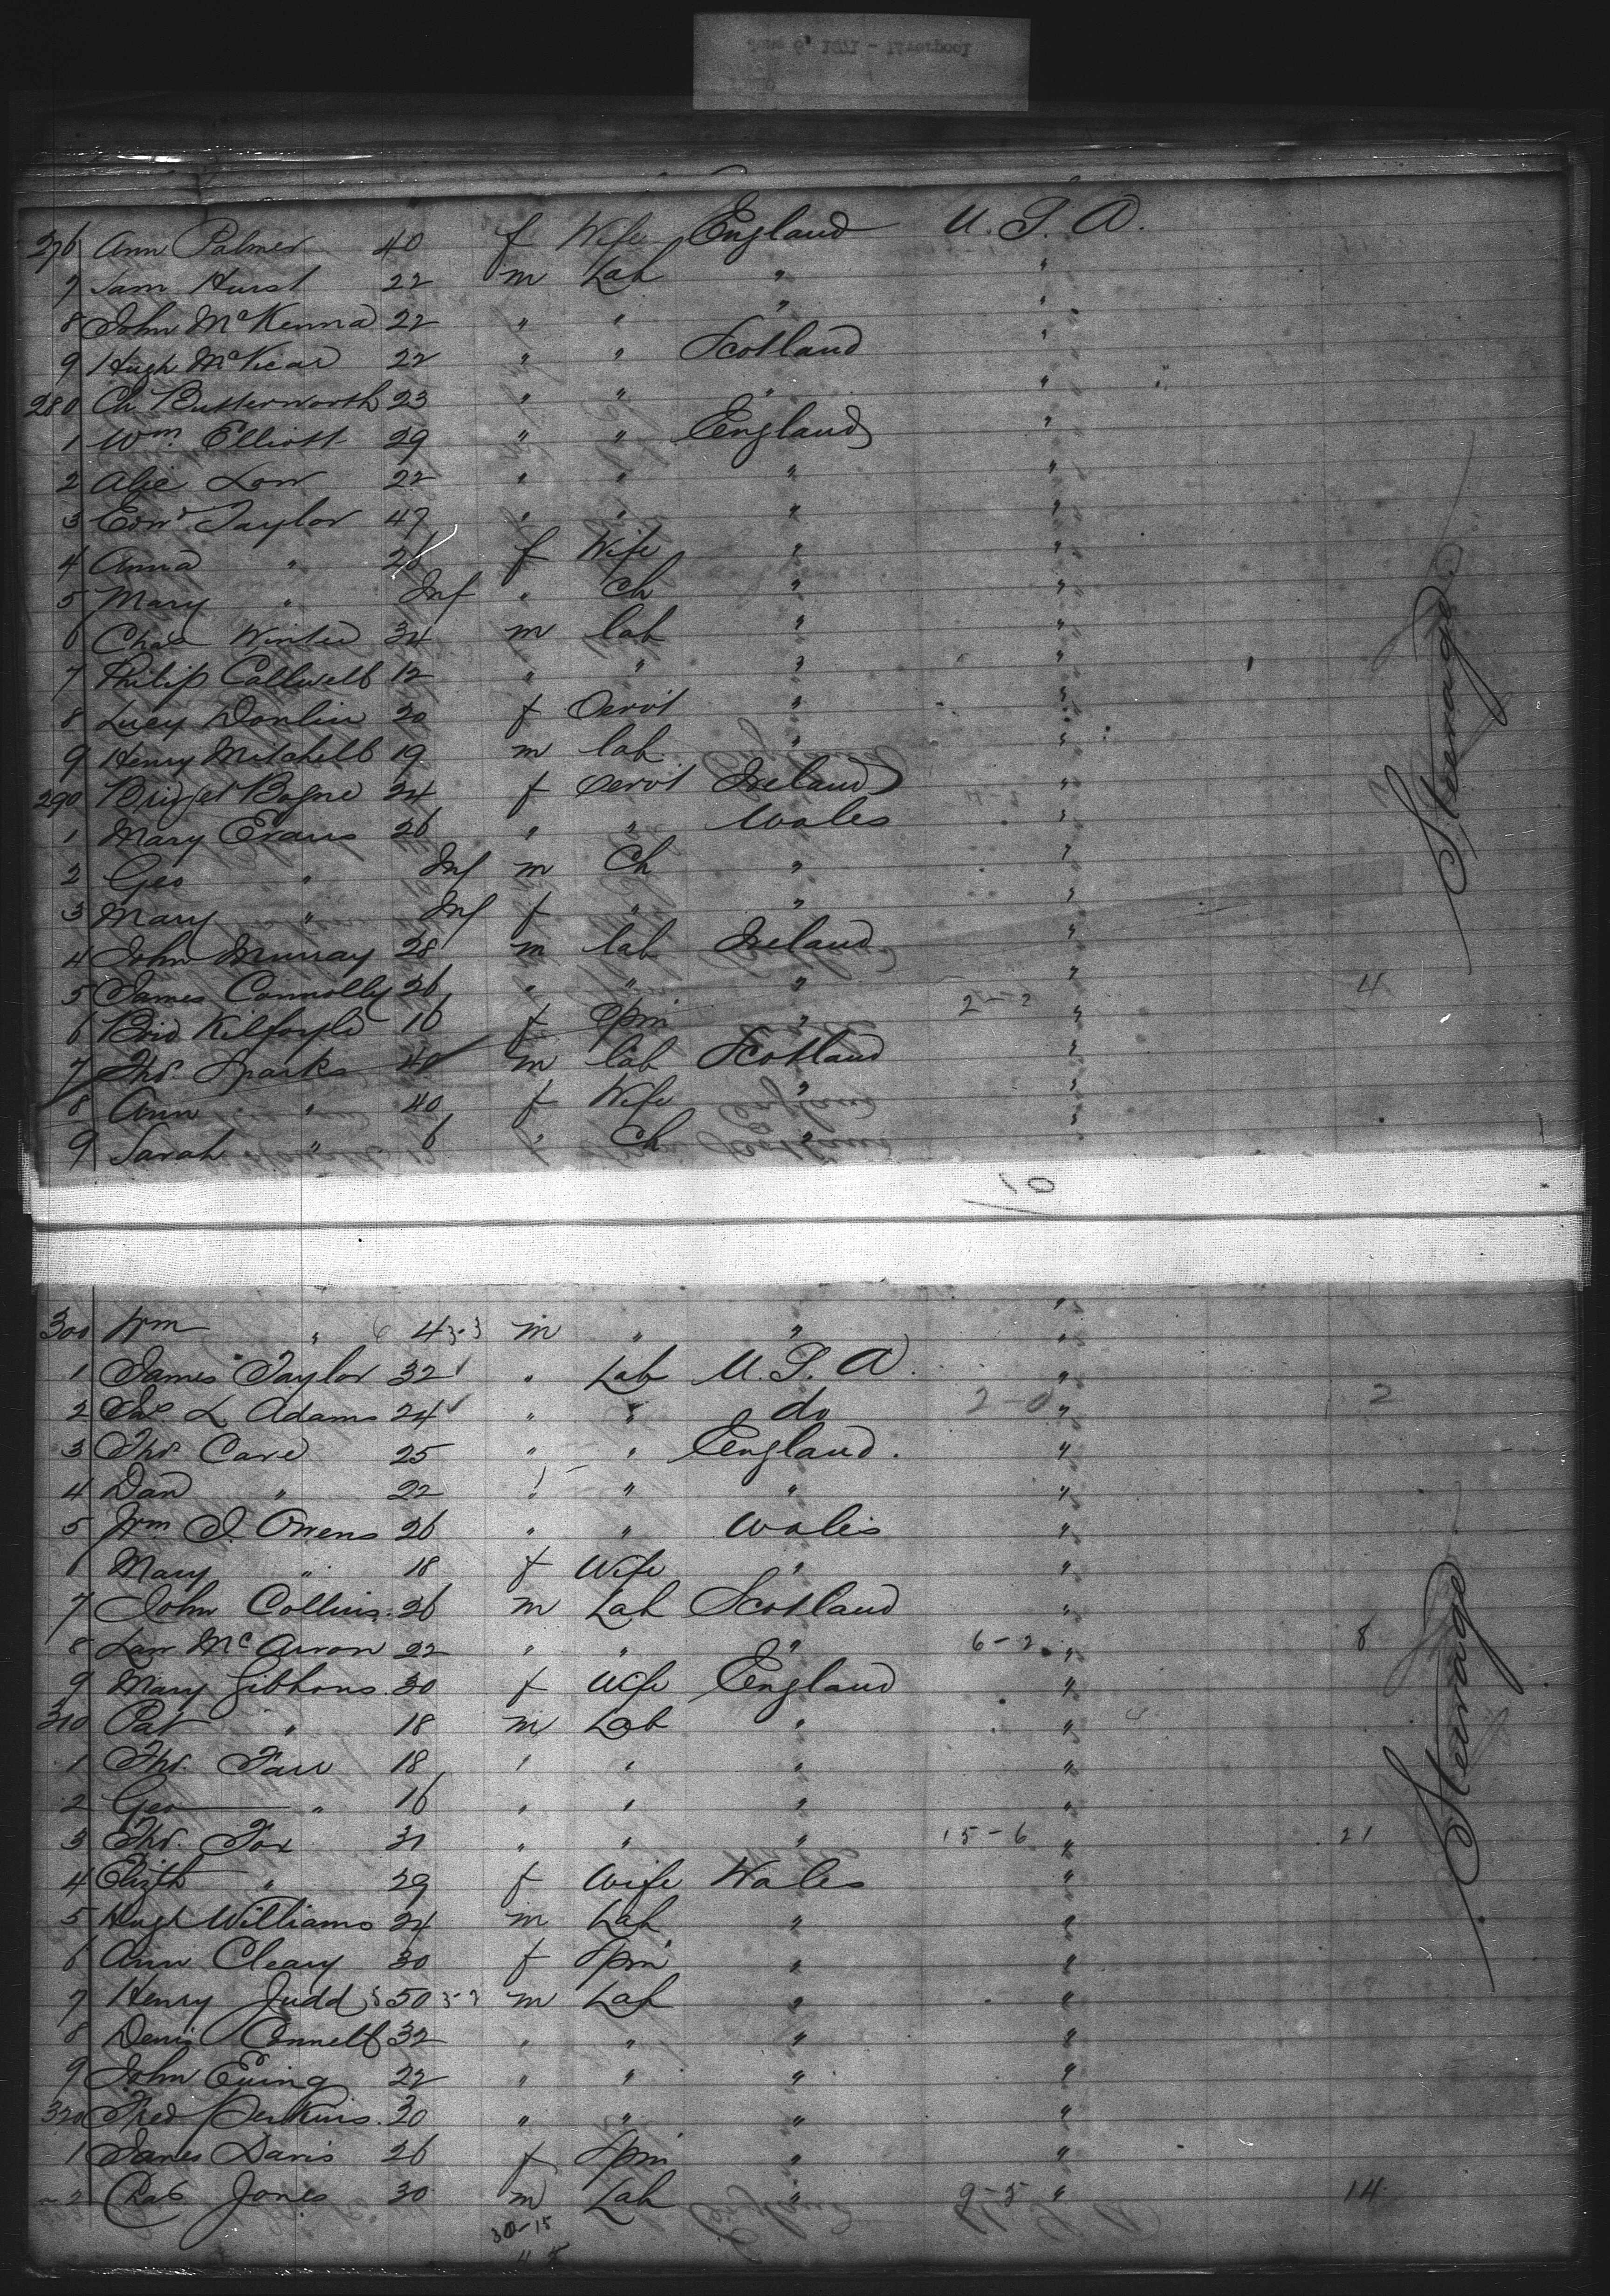 276 Ann Palmer 40 f Wife England U.S.A.
7 Sam Hurst 22 m Lab " "
8 John McKenna 22 " " " "
9 Hugh McVicar 22 " " Scotland "
280 Ch Butterworth 23 " " " "
1 Wm. Elliott 29 " " England "
2 Alic Low 22 " " " "
3 Edwd Taylor 47 " " " "
4 Anna " 26 f Wife " "
5 Mary " Inf " Ch " "
6 Chas Winter 34 m lab " "
7 Philip 12 " " " "
8 Lucy Donlin 20 f Servt " "
9 Henry Mitchell 19 m lab " "
290 Bridget Bogne 24 f Servt Ireland "
1 Mary Evans 26 " " Wales "
2 Geo " Inf m Ch " "
3 Mary " Inf f " " "
4 John Murray 28 m lab Ireland "
5 James Connolly 26 " " " " 4
6 Brid Kilfoyle 16 f Spin " 2-2 "
7 Thos. Sparks 40 m lab Scotland "
8 Ann " 40 f Wife " "
9 Sarah " 6 " Ch " "
Steerage
10
300 Wm " 4 3-3 m " " "
1 James Taylor 32 " Lab U.S.A. "
2 L Adams 24 " " do 2-0 " 2
3 Thos. Care 25 " " England. "
4 Dan " 22 " " " "
5 Wm J. Owens 26 " " Wales "
6 Mary " 18 f Wife " "
7 John Collins 26 m Lab Scotland "
8 Law 22 " " " 6-2 " 8
9 Mary Gibbons 30 f Wife England "
310 Pat " 18 m Lab " "
1 Thos. Farr 18 " " " "
2 Geo " 16 " " " "
3 Thos. Fox 31 " " " 15-6 " 21
4 Elizth " 29 f Wife Wales "
5 Hugh Williams 24 m Lab " "
6 Ann Cleary 30 f Spin " "
7 Henry Judd 50 m Lab " "
8 Denis Connell 32 " " " "
9 John Ewing 22 " " " "
320 Fred Perkins 20 " " " "
1 Davis 26 f Spin " "
2 Chas. Jones 30 m Lab " 9-5 " 14
30-15
Steerage